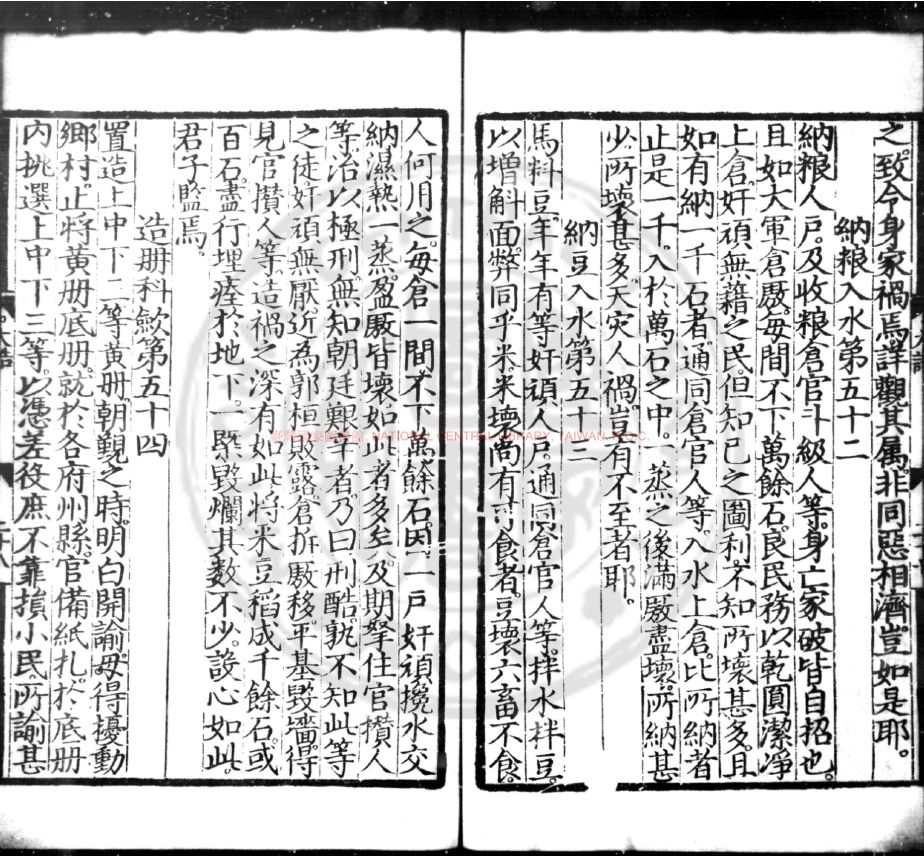 之致令身家禍焉詳觀其属非同惡相濟豈如是耶。
納粮入水第五十二
納粮人戶及收粮倉官斗級人等身亡家破皆自招也。
且如大軍倉廒每間不下萬餘石良民務以乾圓潔淨
上倉奸頑無藉之民但知己之圖利不知所壞甚多且
如有納一千石者通同倉官人等入水上倉比所納者
止是一千入於萬石之中一蒸之後滿廒盡壞所納甚
少所壞甚多天灾人禍豈有不至者耶。
納豆入水第五十三
馬料豆年年有等奸頑人戶通同倉官人等拌水拌豆
以增斛面弊同乎米米壞尚有可食者豆壞六畜不食。
人何用之每倉一間不下萬餘石因一戶奸頑攙水交
納濕熱一蒸盈廒皆壞如此者多矣及期拏住官攢人
等治以極刑無知朝廷艱辛者乃曰刑酷孰不知此等
之徒奸頑無厭近為郭桓敗露倉拆廒移平基毀墻得
見官攢人等造禍之深有如此將米豆稻成千餘石或
百石盡行埋瘞於地下一槩毀爛其數不少設心如此。
君子監焉
造册科歛第五十四
置造上中下三等黃册朝覲之時明白開諭毋得擾動
鄉村止將黃册底册就於各府州縣官備紙札於底册
內挑選上中下三等以憑差役庶不靠損小民所諭甚
NATIONAL CENTRAL LIBRARY, TAIWAN, R.O.C.